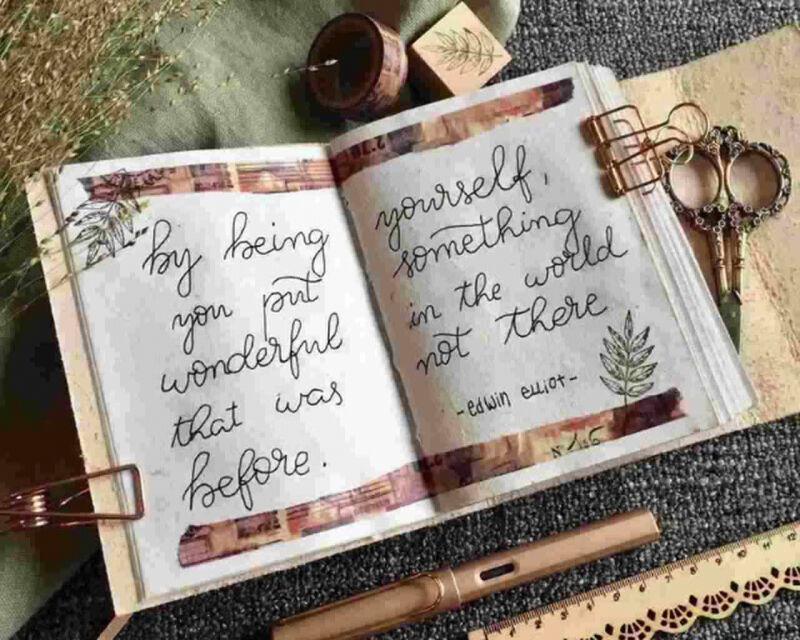 by being
you put
wonderful
that was
before.
yourself,
something
in the world
not there
-edwin elliot-